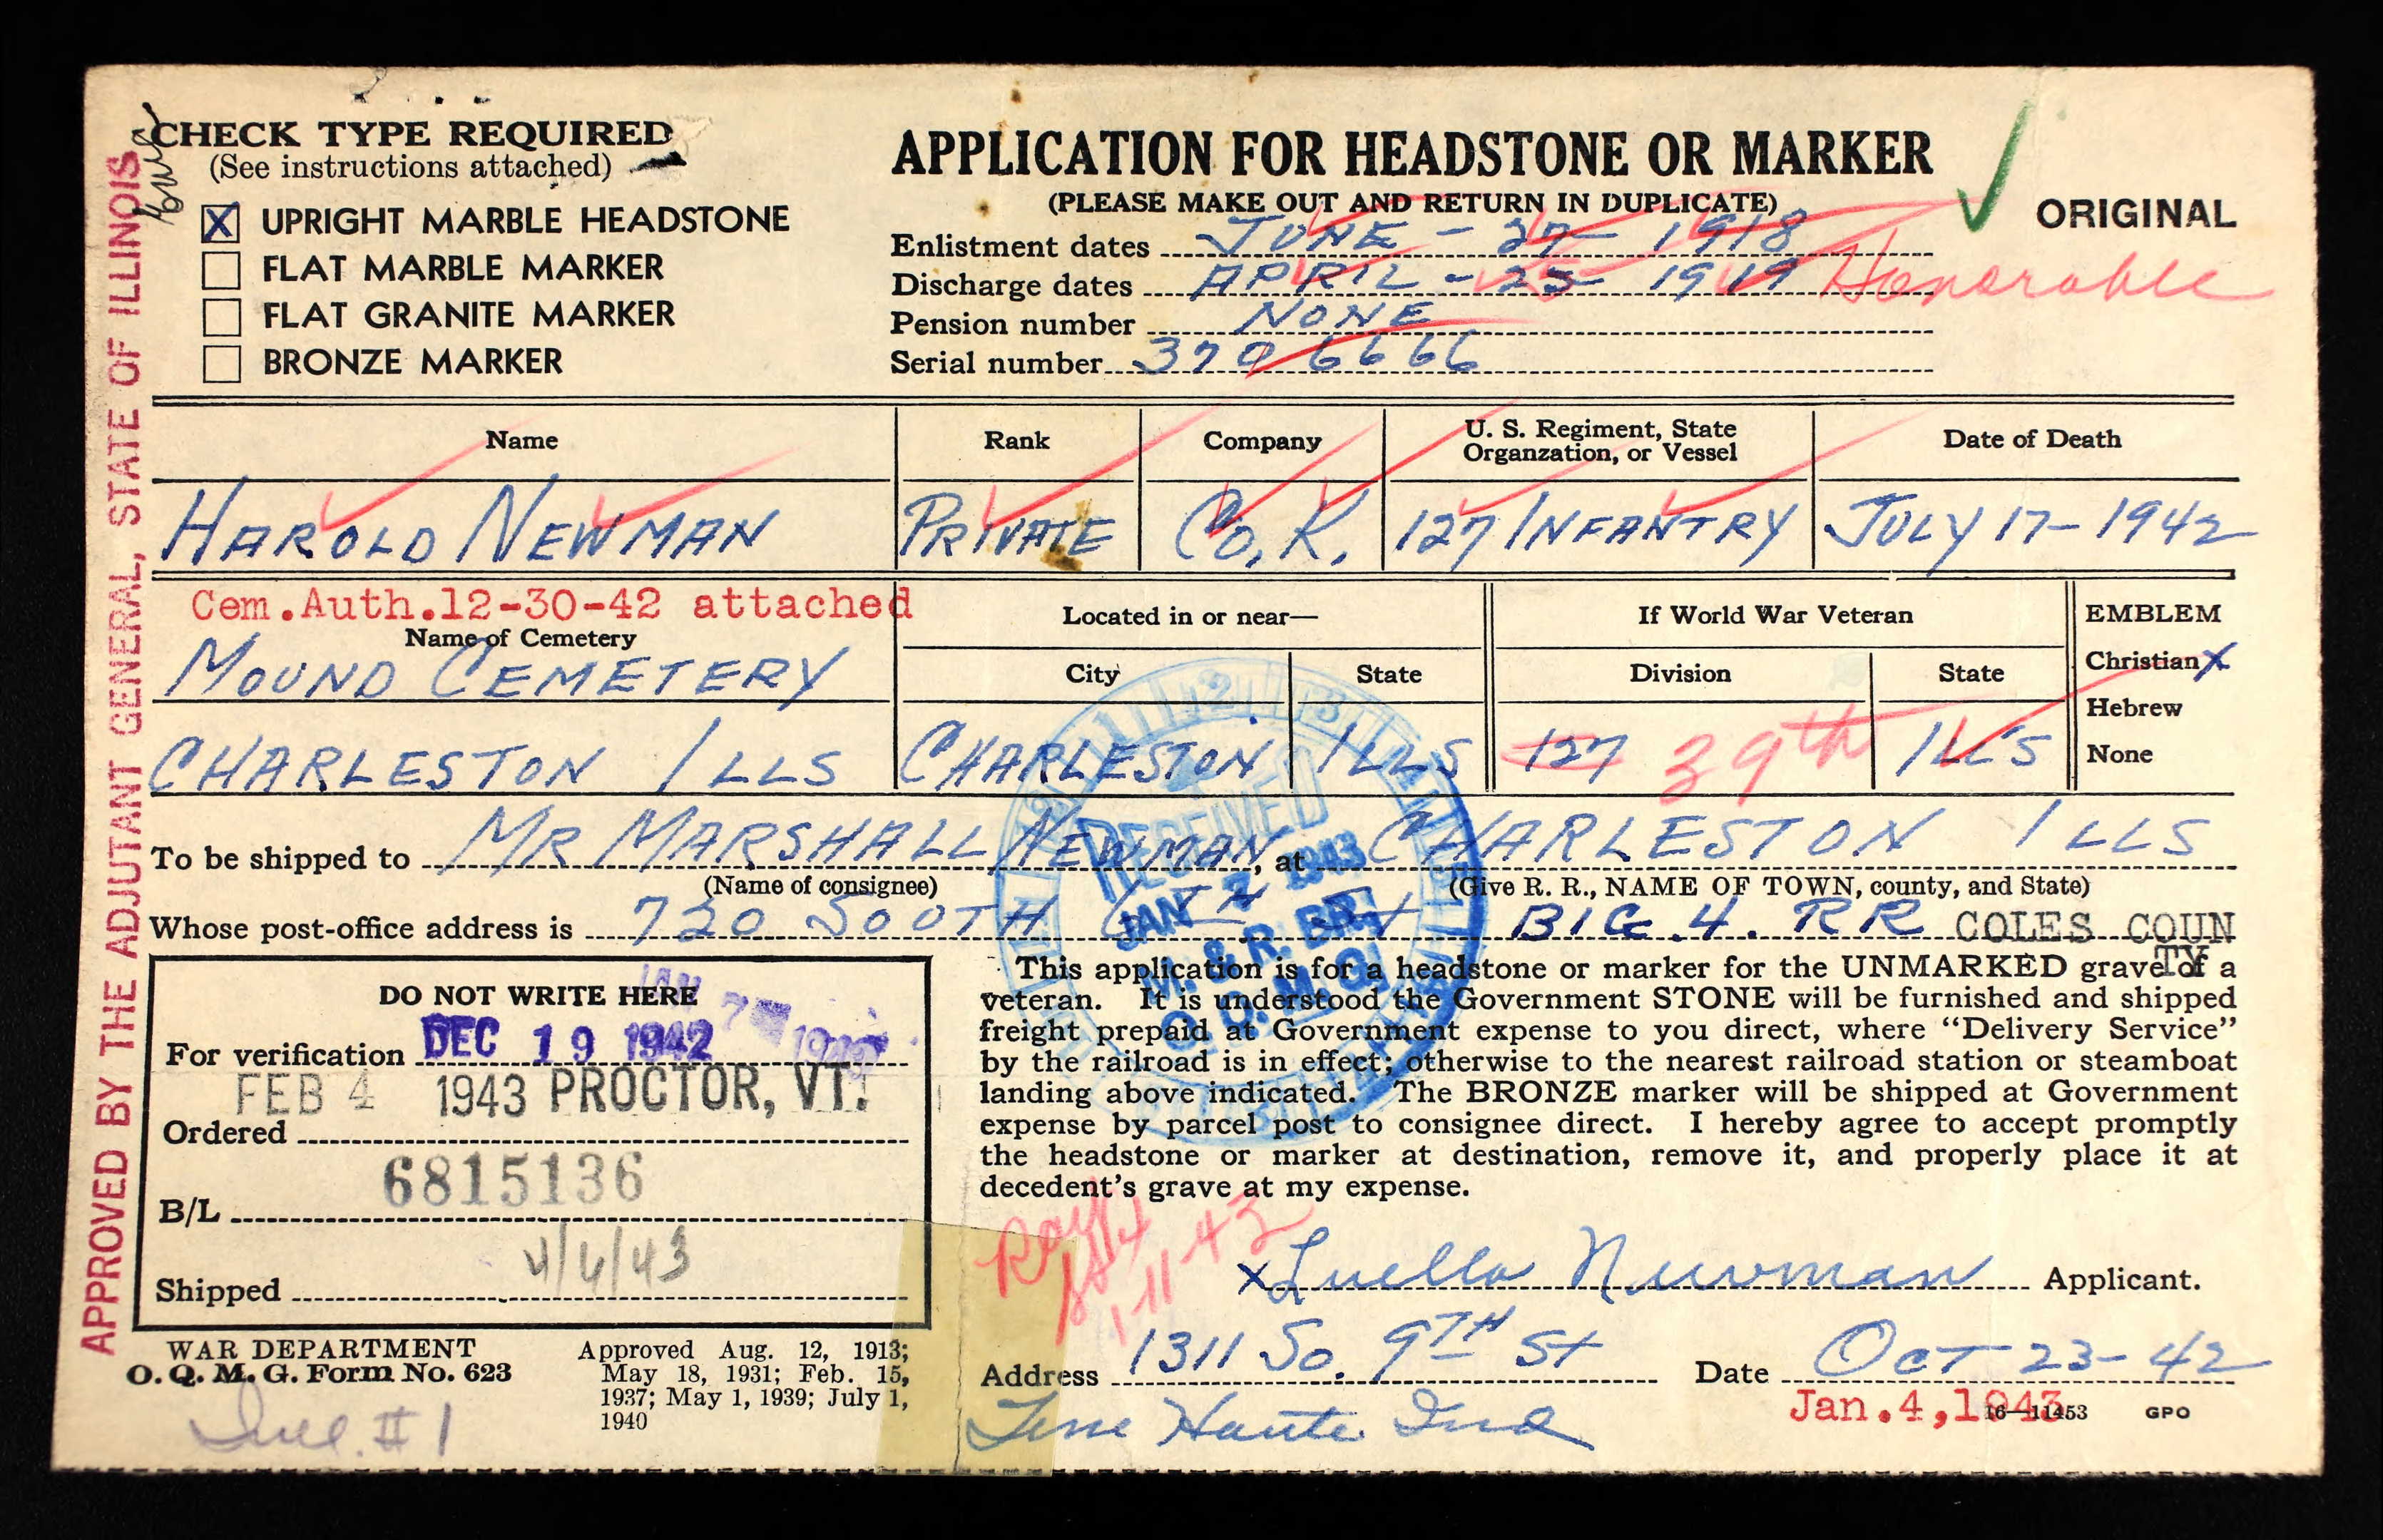 CHECK TYPE REQUIRED
(See instructions attached)
X UPRIGHT MARBLE HEADSTONE
FLAT MARBLE MARKER
FLAT GRANITE MARKER
BRONZE MARKER
APPLICATION FOR HEADSTONE OR MARKER
(PLEASE MAKE OUT AND RETURN IN DUPLICATE)
ORIGINAL
Enlistment dates JUNE - 27 - 1918
Discharge dates APRIL - 25 - 1919 Honorable
Pension number NONE
Serial number 3706666
Name
Rank
Company
U. S. Regiment, State
Organzation, or Vessel
Date of Death
HAROLD NEWMAN
PRIVATE
CO. K.
127 INFANTRY
JULY 17 - 1942
Cem.Auth.12-30-42 attached
Name of Cemetery
MOUND CEMETERY
CHARLESTON ILLS
Located in or near—
City
State
CHARLESTON
ILLS
If World War Veteran
Division
State
127 39th
ILLS
EMBLEM
Christian X
Hebrew
None
To be shipped to MR MARSHALL NEWMAN, at CHARLESTON ILLS
(Name of consignee)
(Give R. R., NAME OF TOWN, county, and State)
Whose post-office address is 720 SOUTH 6TH St BIG. 4. RR COLES COUN
TY
RECEIVED
JAN 7 1943
M. & R. BR.
O. Q. M. G.
DO NOT WRITE HERE
JAN 7 1943
For verification DEC 19 1942
FEB 4 1943 PROCTOR, VT.
Ordered
6815136
B/L
4/6/43
Shipped
This application is for a headstone or marker for the UNMARKED grave of a
veteran. It is understood the Government STONE will be furnished and shipped
freight prepaid at Government expense to you direct, where "Delivery Service"
by the railroad is in effect; otherwise to the nearest railroad station or steamboat
landing above indicated. The BRONZE marker will be shipped at Government
expense by parcel post to consignee direct. I hereby agree to accept promptly
the headstone or marker at destination, remove it, and properly place it at
decedent's grave at my expense.
1-11-43
X Luella Newman Applicant.
Address 1311 So. 9TH St Date OCT 23-42
Terre Haute Ind
Jan.4,1943
16—11453 GPO
WAR DEPARTMENT
O. Q. M. G. Form No. 623
Approved Aug. 12, 1913;
May 18, 1931; Feb. 15,
1937; May 1, 1939; July 1,
1940
#1
APPROVED BY THE ADJUTANT GENERAL, STATE OF ILLINOIS